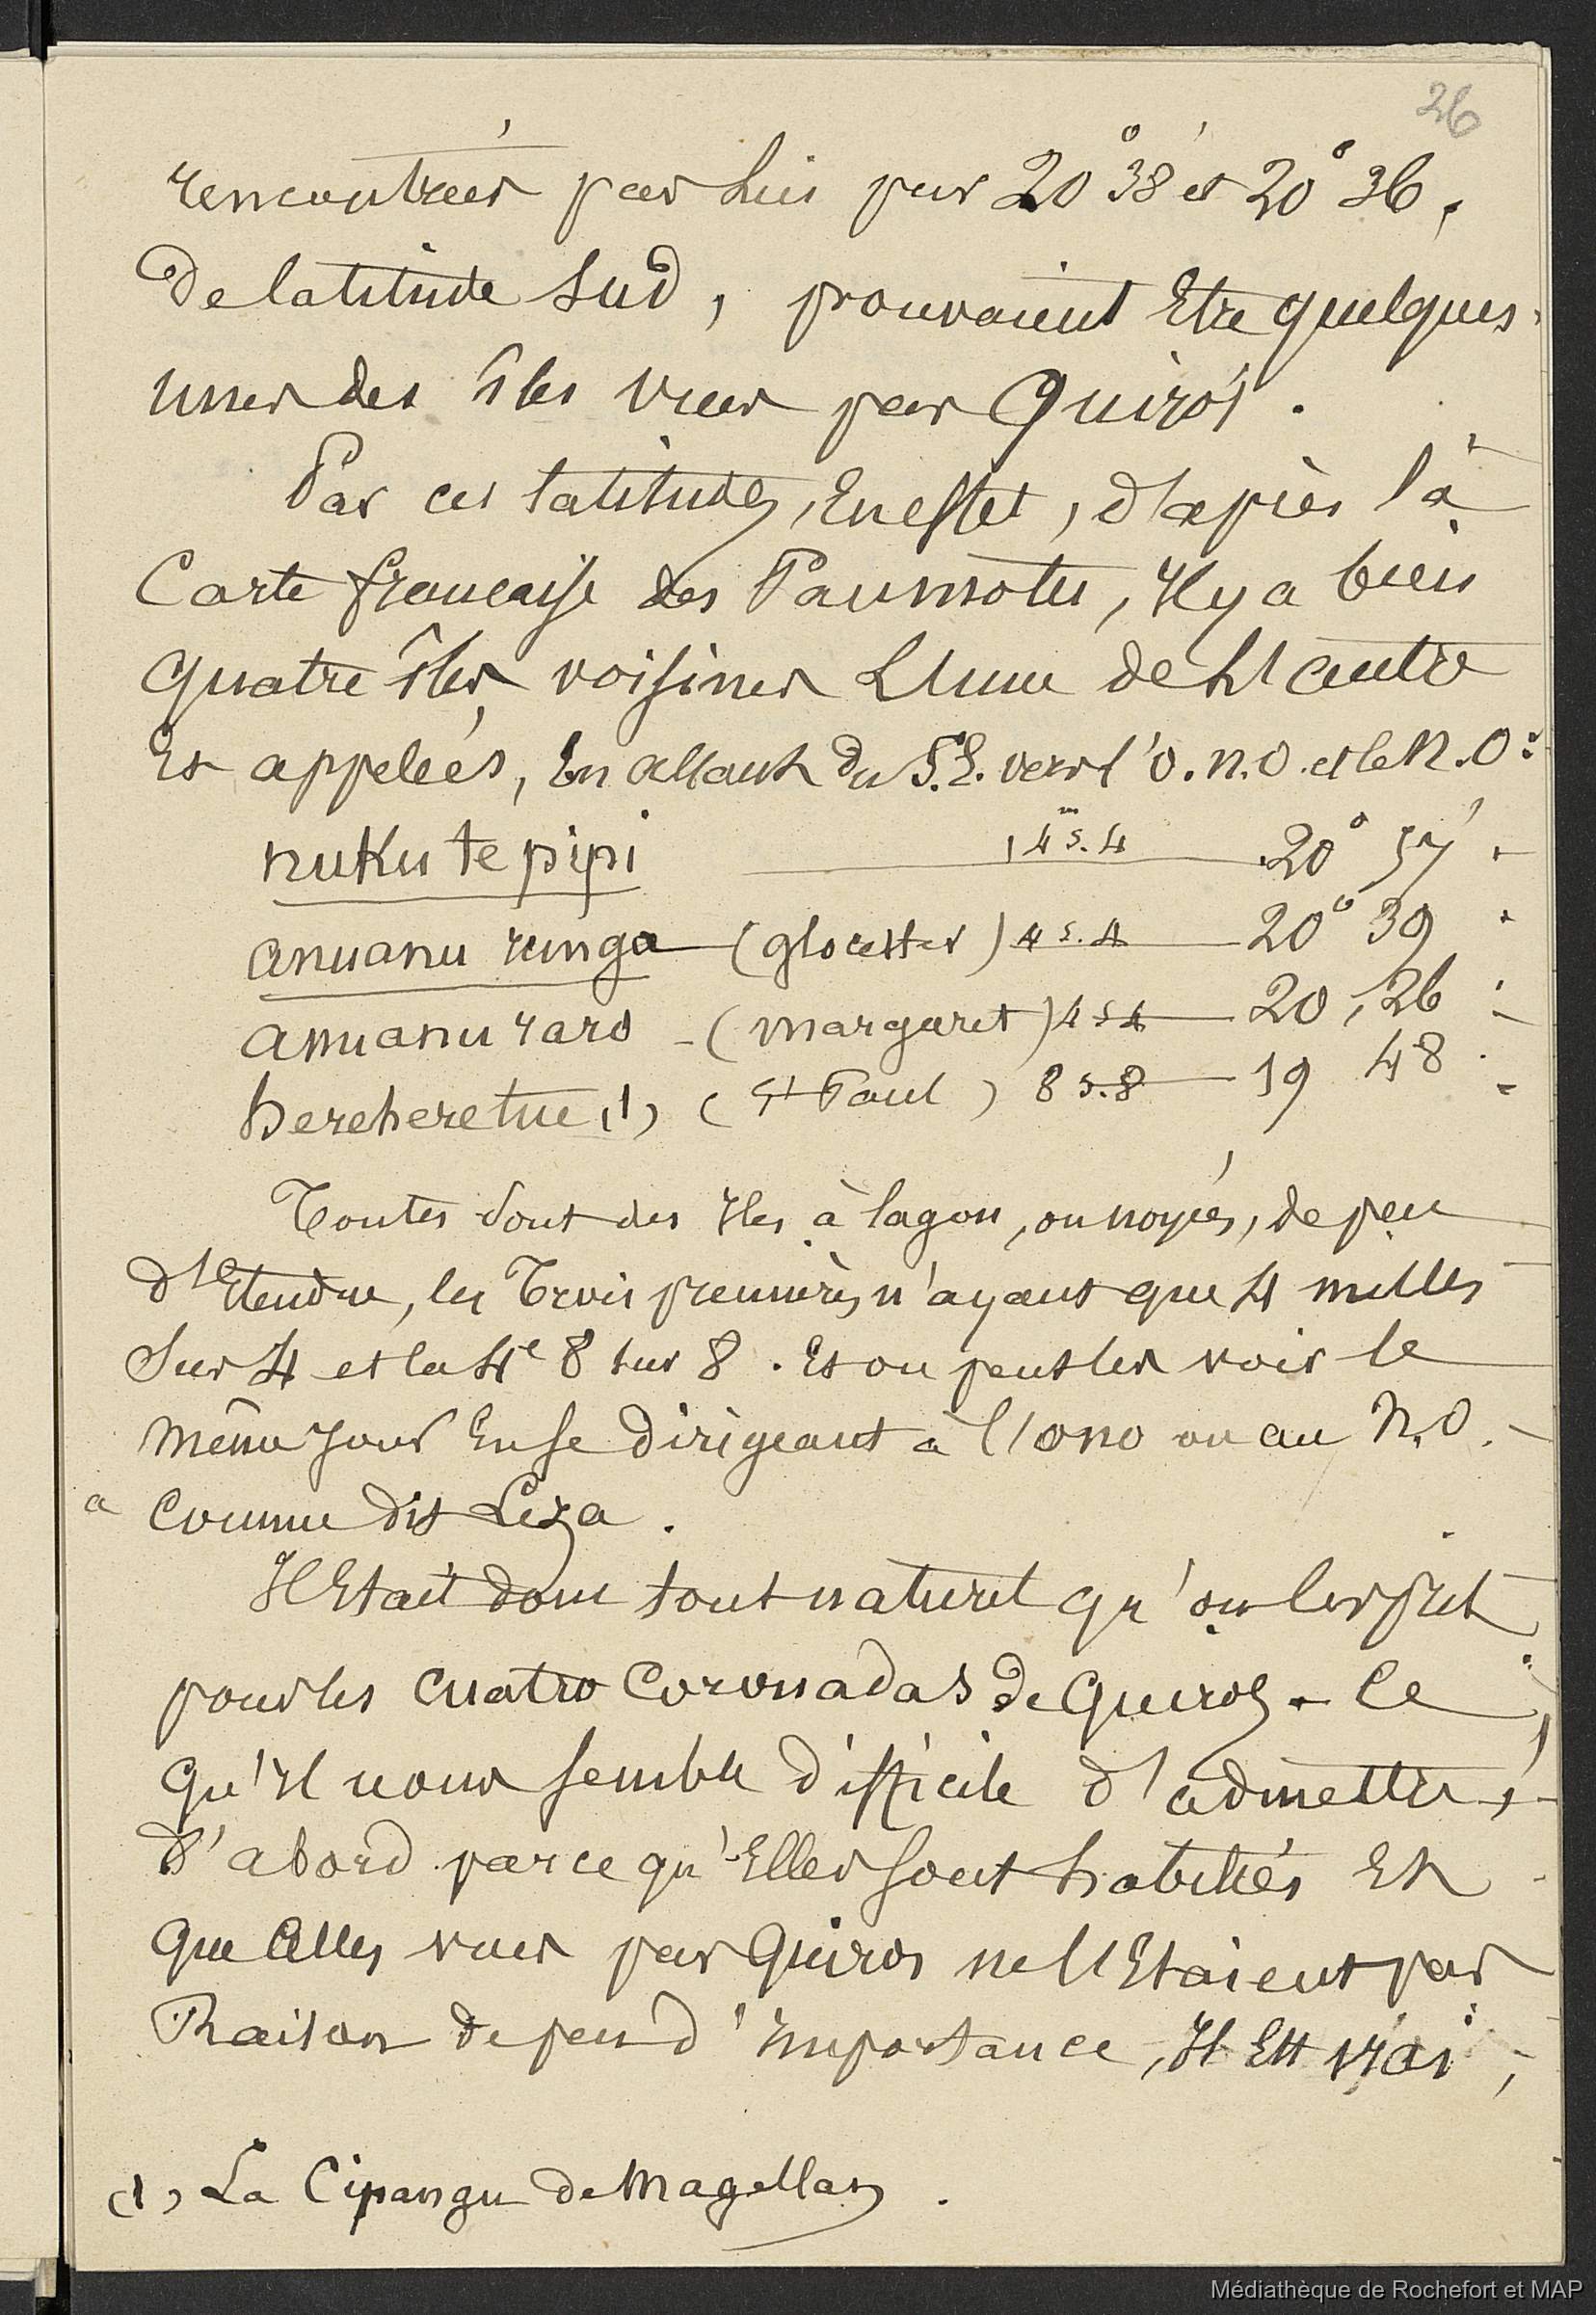 26
rencontrées par lui par 20° 38' et 20° 36,
de latitude sud, pouvaient Etre quelques-
unes des îles vues par Quiros.
Par ces latitudes, En effet, d'après la
Carte française des Paumotu, Il y a bien
quatre îles, voisines L'une de L'autre
Et appelées, En allant du S.E. vers l'O.N.O. et le N.O:
nuku te pipi 4 s. 4 20° 57'
anuanu runga (glocester) 4 s. 4 20° 39
anuanu raro - (margaret) 4 s 4 20, 26
hereheretue (1) (St Paul) 8 s. 8 19 48
Toutes sont des Iles à lagon, ou noyées, de peu
d'Etendue, les Trois premières n'ayant que 4 milles
Sur 4 et la 4e 8 sur 8. Et on peut les voir le
même jour En se dirigeant à l'ono ou au N.O.
a comme dit Leza.
Il Etait donc tout naturel qu'on les prit
pour les cuatro Coronadas de Quiros - Ce
qu'Il nous semble difficile d'admettre,
d'abord parce qu'Elles sont habitées Et
que celles vues par Quiros ne l'Etaient pas
Raison de peu d'Importance, Il Est vrai,
(1) La Cipangu de Magellan.
Médiathèque de Rochefort et MAP